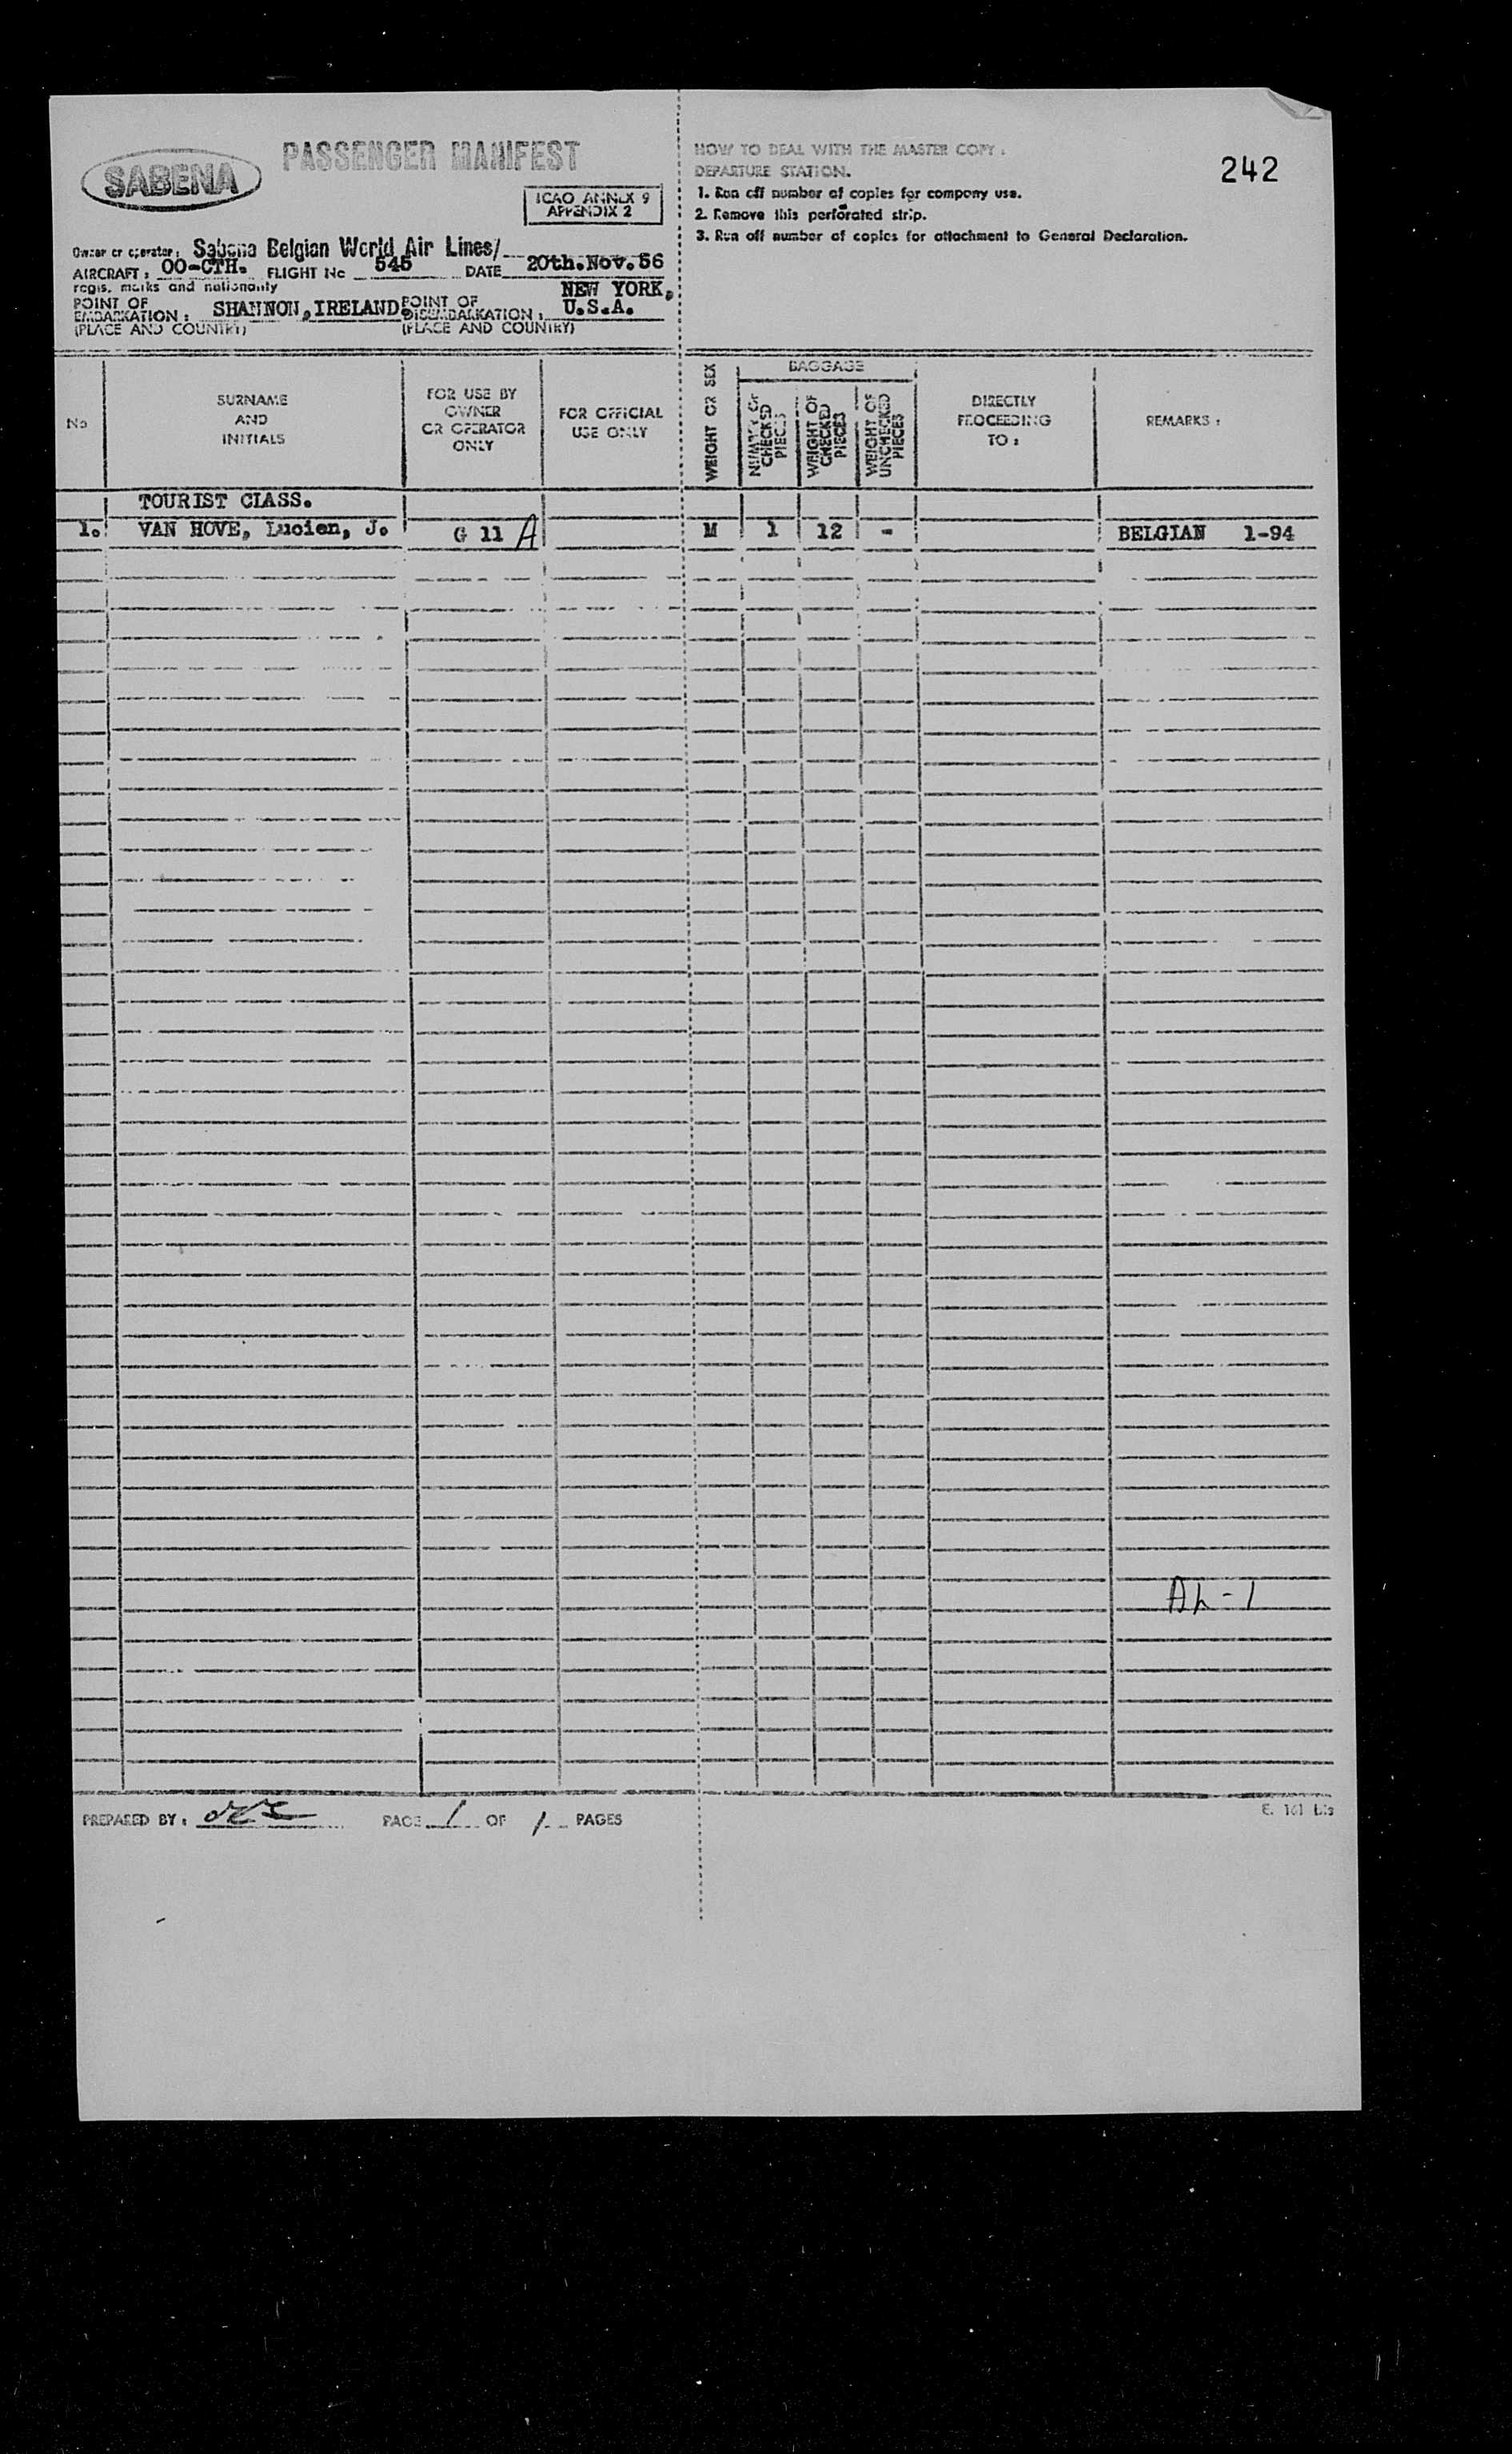 SABENA
PASSENGER MANIFEST
ICAO ANNEX 9
APPENDIX 2
HOW TO DEAL WITH THE MASTER COPY :
DEPARTURE STATION.
1. Run off number of copies for company use.
2. Remove this perforated strip.
3. Run off number of copies for attachment to General Declaration.
242
Owner or operator: Sabena Belgian World Air Lines/
AIRCRAFT: OO-CTH. FLIGHT No 545 DATE 20th.Nov.56
regis. marks and nationality
POINT OF EMBARKATION: SHANNON, IRELAND POINT OF DISEMBARKATION: NEW YORK, U.S.A.
(PLACE AND COUNTRY) (PLACE AND COUNTRY)
No
SURNAME AND INITIALS
FOR USE BY OWNER OR OPERATOR ONLY
FOR OFFICIAL USE ONLY
WEIGHT OR SEX
BAGGAGE
NUMBER OF CHECKED PIECES
WEIGHT OF CHECKED PIECES
WEIGHT OF UNCHECKED PIECES
DIRECTLY PROCEEDING TO :
REMARKS :
TOURIST CLASS.
1. VAN HOVE, Lucien, J. G 11 A M 1 12 - BELGIAN 1-94
AL-1
PREPARED BY: PAGE 1 OF 1 PAGES
E. 161 bis